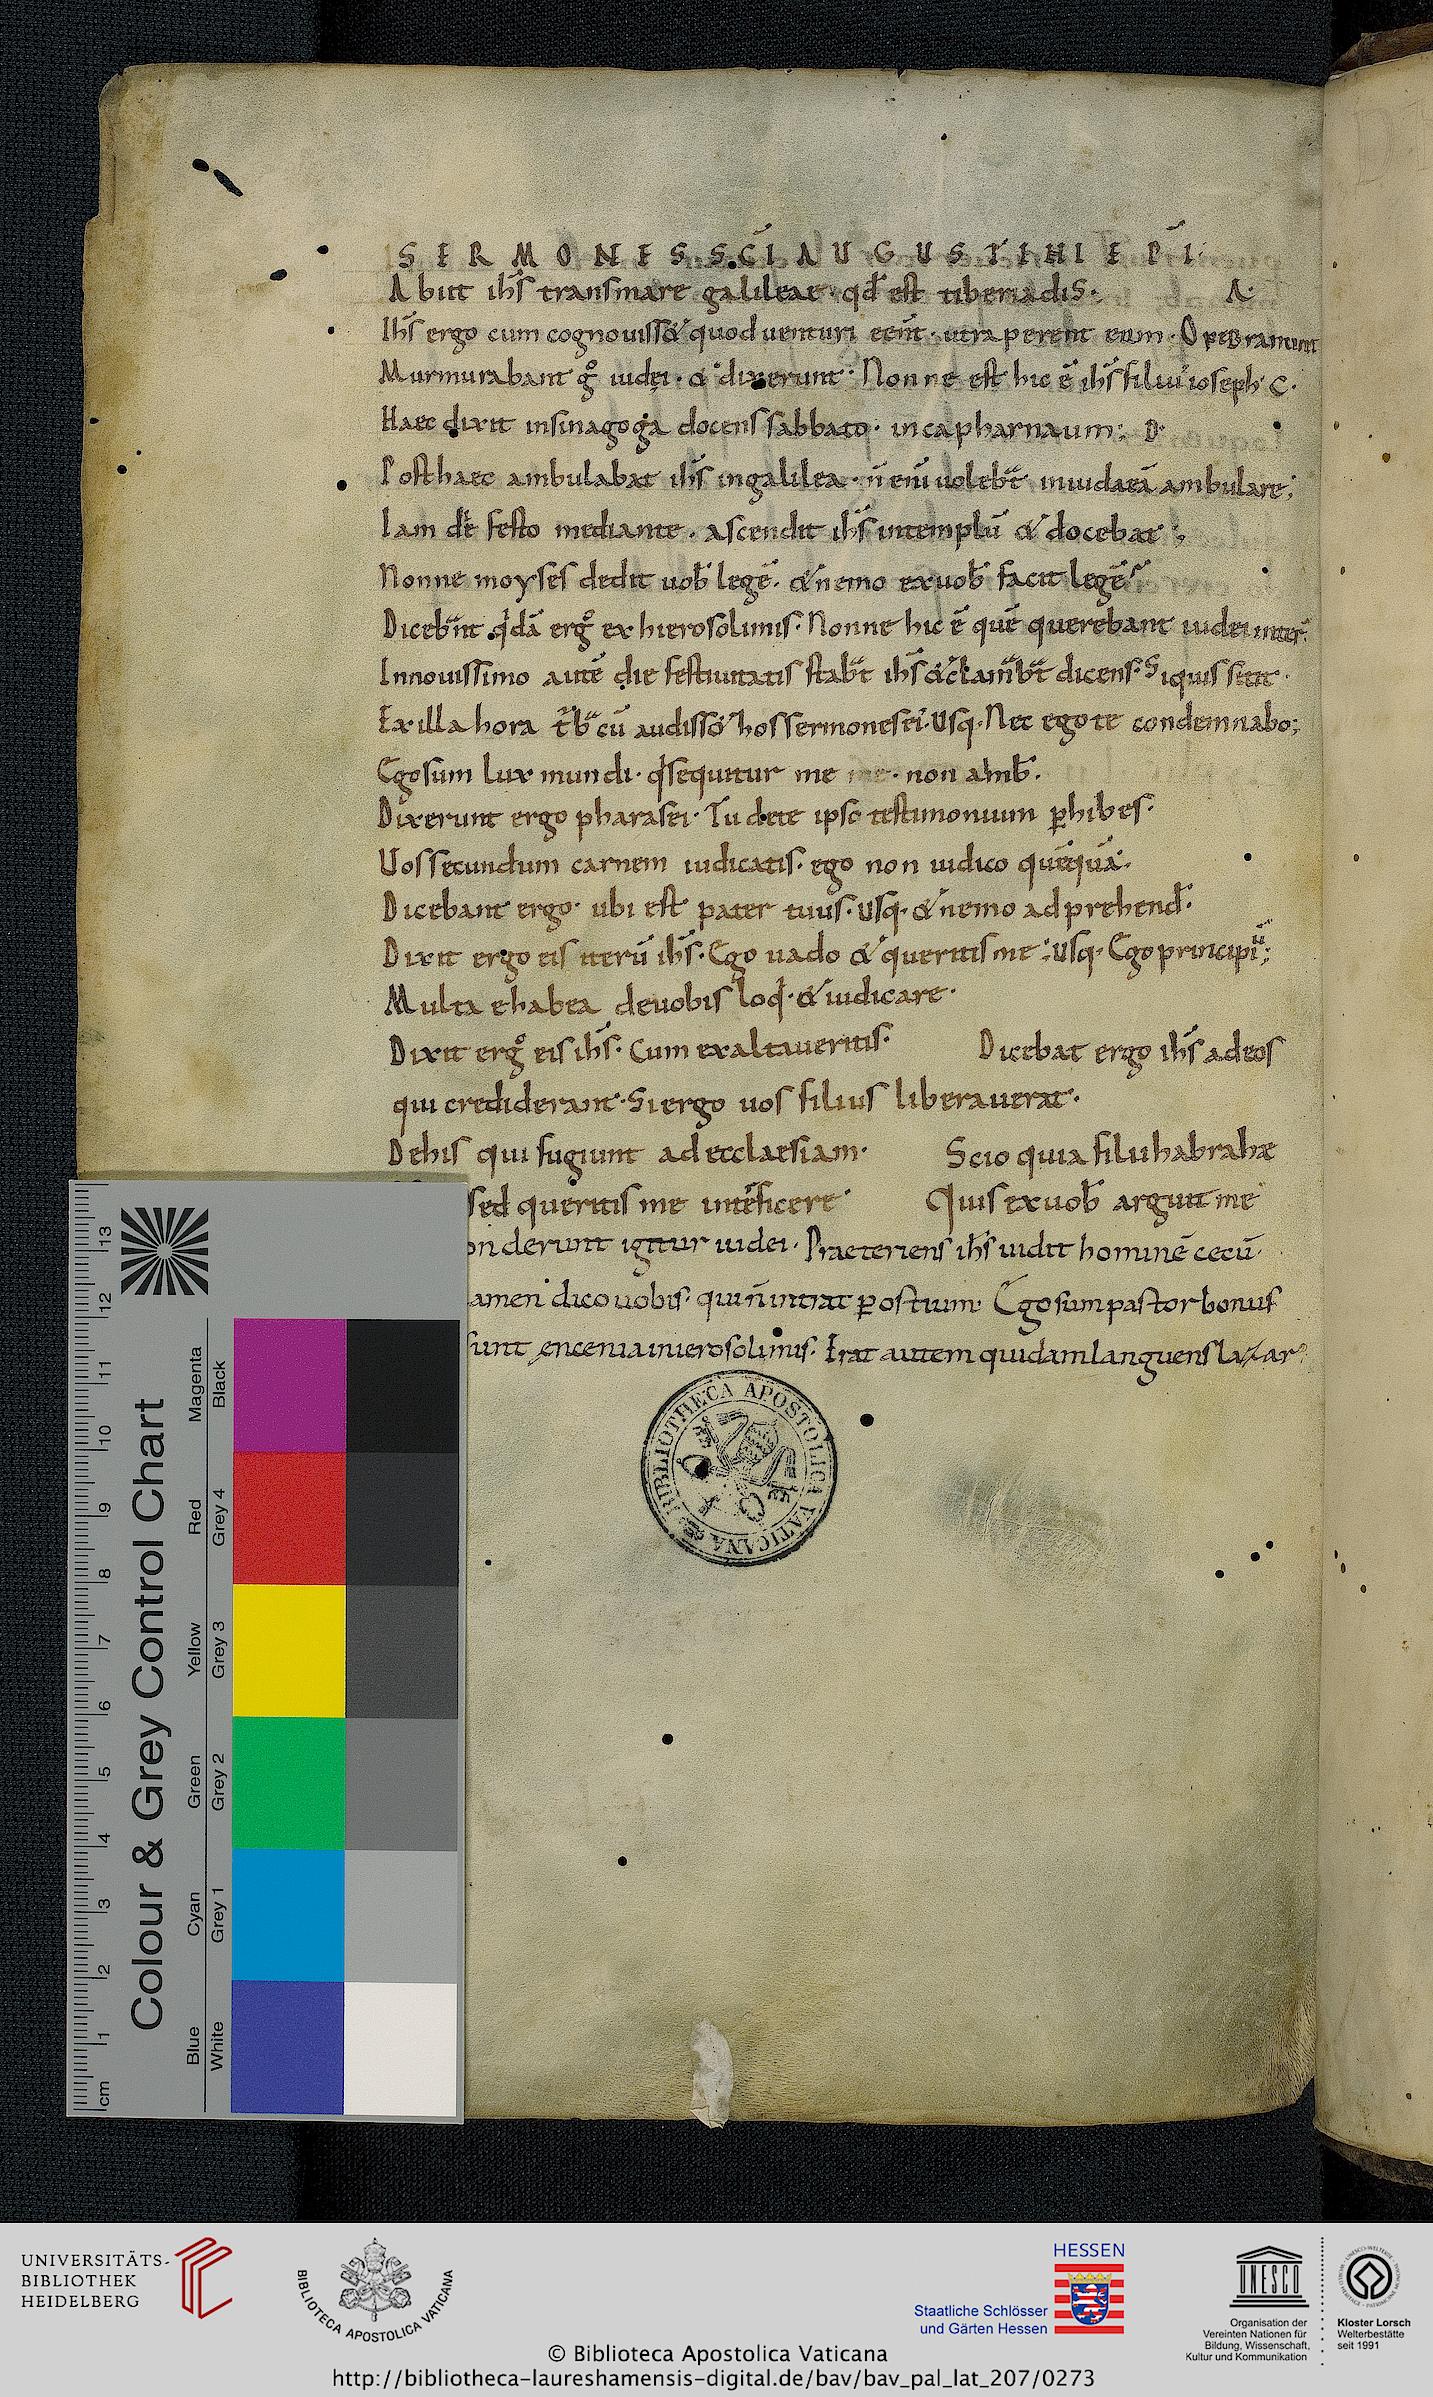 SERMONES SCĪ AUGUSTINI EPĪ
Abiit ihs̄ transmare galileae · qđ est tiberiadis · A·
Ihs̄ ergo cum cognouiss& quod uenturi een̄t · utraperent eum · Operamini
Murmurabant gͦ iudęi · & dixerunt · Nonne est hic ē ihs̄ filiuſ ioseph · C·
Haec dixit insinagoga docens sabbato · incapharnaum; D·
Posthaec ambulabat ihs̄ ingalilea · n̄ eni uolebat iniudaeā ambulare;
Iam dē festo mediante · ascendit ihs̄ intemplū & docebat;
Nonne moyses dedit uob̄ legē · & nemo exuob̄ facit legē
Diceb̄nt qdā ergͦ ex hierosolimis · Nonne hic ē quē querebant iudei interf
Innouissimo autē die festiuitatis stab̄t ihs̄ & clamab̄t dicens · Siquis sitit ·
Exilla hora cū audiss& hos sermones ei · Usq · Nec ego te condemnabo;
Ego sum lux mundi · q sequitur me me · non amb̄ ·
Dixerunt ergo pharasei · Tu dete ipso testimonium phibes ·
Uos secundum carnem iudicatis · ego non iudico quēquā ·
Dicebant ergo · ubi est pater tuus · usq · & nemo adprehend̄ ·
Dixit ergo eis iterū ihs̄ · Ego uado & queritis me · usq · Ego principiū;
Multa ehabea deuobis loq · & iudicare ·
Dixit ergͦ eis ihs̄ · Cum exaltaueritis · Dicebat ergo ihs̄ adeos
qui crediderant · Si ergo uos filius liberauerat ·
Dehis qui fugiunt adecclaesiam · Scio quia filii habrahæ
sed queritis me interficere · Quis exuob̄ arguit me
onderunt igitur iudei · Praeteriens ihs̄ uidit hominē cecū ·
amen dico uobis · qui n̄ intrat p ostium · Ego sum pastor bonus
sunt encenia inierosolimis · Erat autem quidam languens lazar
BIBLIOTHECA APOSTOLICA VATICANA
Colour & Grey Control Chart
Magenta Black
Red Grey 4
Yellow Grey 3
Green Grey 2
Cyan Grey 1
Blue White
13
12
11
10
9
8
7
6
5
4
3
2
1
cm
UNIVERSITÄTS-
BIBLIOTHEK
HEIDELBERG
BIBLIOTECA APOSTOLICA VATICANA
HESSEN
Staatliche Schlösser
und Gärten Hessen
UNESCO
Organisation der
Vereinten Nationen für
Bildung, Wissenschaft,
Kultur und Kommunikation
Kloster Lorsch
Welterbestätte
seit 1991
© Biblioteca Apostolica Vaticana
http://bibliotheca-laureshamensis-digital.de/bav/bav_pal_lat_207/0273